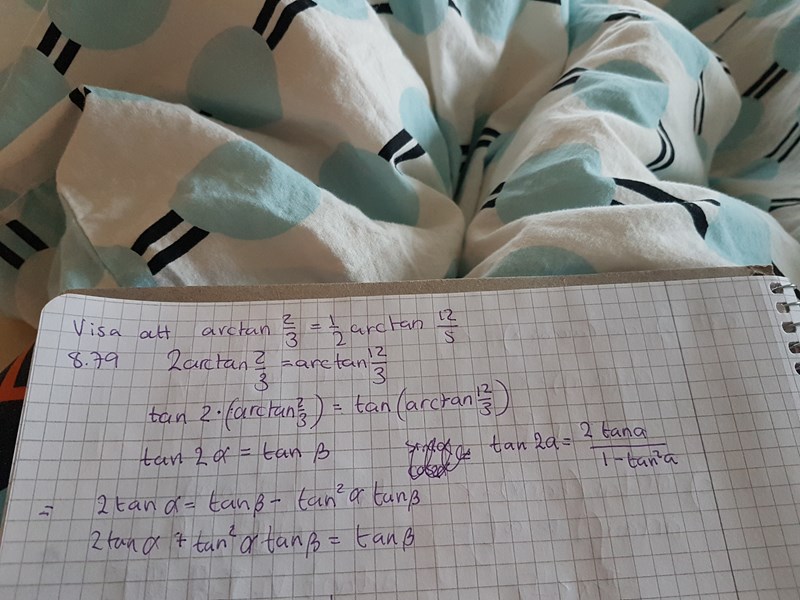 Visa att arctan 2/3 = 1/2 arctan 12/5
8.79 2arctan 2/3 = arctan 12/3
tan 2·(arctan 2/3) = tan(arctan 12/3)
tan 2α = tan β tan 2α = 2 tanα / 1-tan²α
= 2tan α = tanβ - tan²α tanβ
2tan α + tan²α tanβ = tanβ